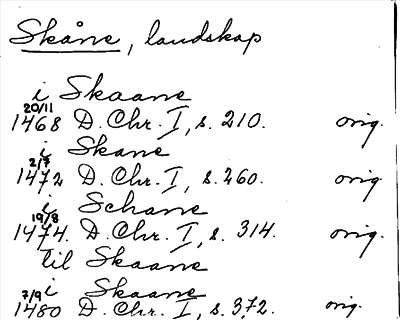 Skåne, landskap
i Skaane
20/11
1468 D. Chr. I, s. 210. orig.
i Skane
2/7
1472 D. Chr. I, s. 260. orig.
i Schane
19/8
1474. D. Chr. I, s. 314. orig.
til Skaane
i Skaane
7/9
1480 D. Chr. I, s. 372. orig.